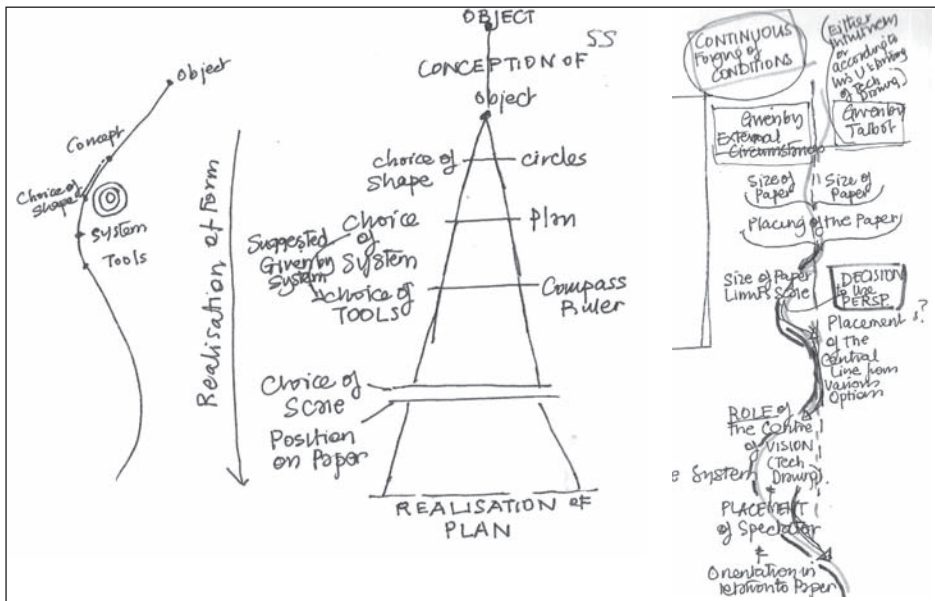 Object
Concept
Choice of
Shape
System
Tools
Realisation of Form
OBJECT
SS
CONCEPTION OF
Object
choice of
shape
circles
Choice
of
System
Plan
Suggested
Given by
System
choice of
TOOLS
Compass
Ruler
Choice of
Scale
Position
on Paper
REALISATION OF
PLAN
CONTINUOUS
Forging of
CONDITIONS
(Either
or
according to
his
of Tech
Drawing)
Given by
External
Circumstances
Given by
Talbot
Size of
Paper
Size of
Paper
Placing of the Paper
Size of Paper
Limits Scale
DECISION
to use
PERSP.
Placement s?
of the
Central
Line from
Various
Options
ROLE of
the Centre
of VISION
(Tech
Drawing).
e System
PLACEMENT
of Spectator
+
Orientation in
relation to Paper